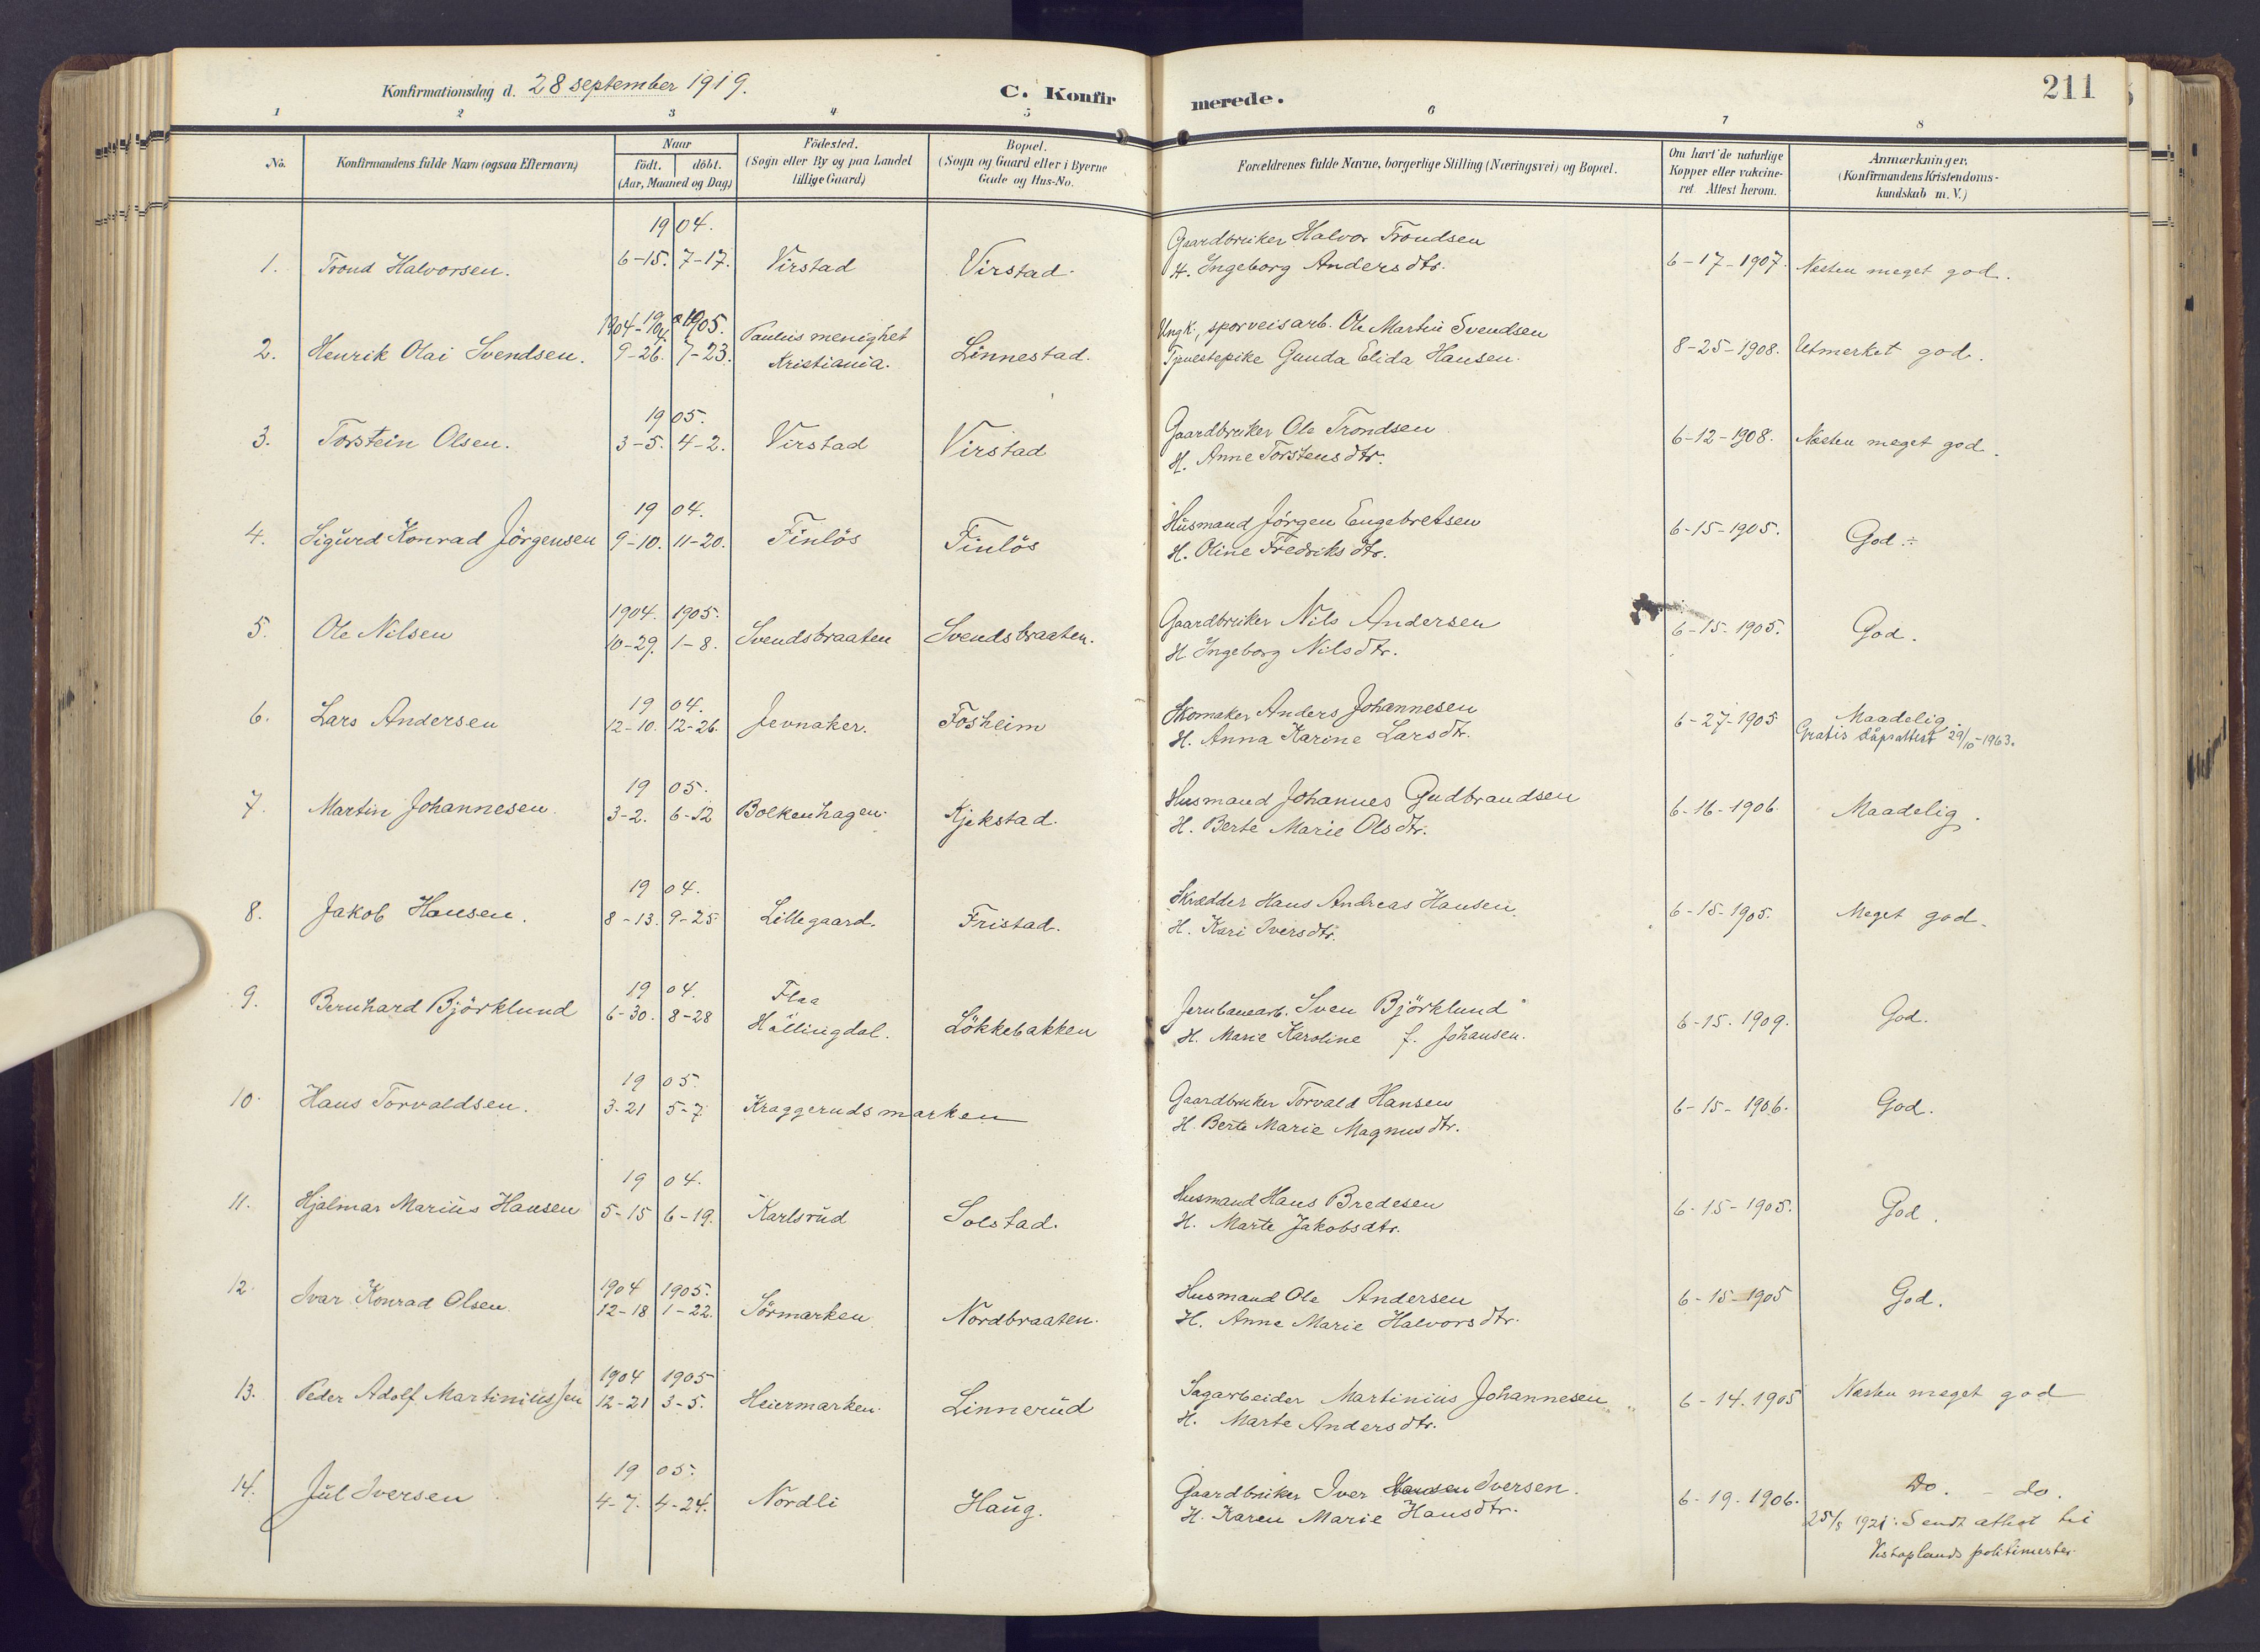 Konfirmationsdag d. 28 september 1919. C. Konfirmerede. 211
1 2 3 4 5 6 7 8
No. Konfirmandens fulde Navn (ogsaa Efternavn) Naar födt. döbt. (Aar, Maaned og Dag) Födested. (Sogn eller By og paa Landet tillige Gaard) Bopæl. (Sogn og Gaard eller i Byerne Gade og Hus-No. Forældrenes fulde Navne, borgerlige Stilling (Næringsvei) og Bopæl. Om havt de naturlige Kopper eller vakcineret. Attest herom. Anmærkninger. (Konfirmandens Kristendomskundskab m. V.)
1904.
1. Trond Halvorsen. 6-15. 7-17. Virstad Virstad. Gaardbruker Halvor Trondsen
H. Ingeborg Andersdtr. 6-17-1907. Nesten meget god.
1904 1905.
2. Henrik Olai Svendsen. 9-26. 7-23. Paulus menighet Kristiania. Linnestad. Ungk., sporveisarb. Ole Martin Svendsen
Tjenestepike Gunda Elida Hansen. 8-25-1908. Utmerket god.
1905.
3. Torstein Olsen. 3-5. 4-2. Virstad Virstad Gaardbruker Ole Trondsen
H. Anne Torstensdtr. 6-12-1908. Nesten meget god.
1904.
4. Sigurd Konrad Jörgensen 9-10. 11-20. Finlös Finlös Husmand Jörgen Engebretsen
H. Oline Fredriksdtr. 6-15-1905. God ÷
1904. 1905.
5. Ole Nilsen 10-29. 1-8. Svendsbraaten Svendsbraaten. Gaardbruker Nils Andersen
H. Ingeborg Nilsdtr. 6-15-1905. God.
1904.
6. Lars Andersen 12-10. 12-26. Jevnaker. Fosheim Skomaker Anders Johannesen
H. Anna Karine Larsdtr. 6-27-1905 Maadelig.
Gratis dåpsattest 29/10-1963.
1905.
7. Martin Johannesen. 3-2. 6-12 Bolkenhagen. Kjekstad. Husmand Johannes Gudbrandsen
H. Berte Marie Olsdtr. 6-16-1906. Maadelig.
1904.
8. Jakob Hansen. 8-13. 9-25 Lillegaard. Fristad. Skrædder Hans Andreas Hansen
H. Kari Iversdtr. 6-15-1905. Meget god.
1904.
9. Bernhard Björklund 6-30. 8-28 Flaa Hallingdal. Lökkebakken Jernbanearb. Sven Björklund
H. Marie Karoline f. Johansen. 6-15.1909. God.
1905.
10. Hans Torvaldsen. 3-21 5-7 Kraggerudsmarken Gaardbruker Torvald Hansen
H. Berte Marie Magnusdtr. 6-15-1906. God.
1904.
11. Hjalmar Marius Hansen 5-15 6-19. Karlsrud Solstad. Husmand Hans Bredesen
H. Marte Jakobsdtr. 6-15-1905. God.
1904 1905.
12. Ivar Konrad Olsen. 12-18 1-22. Sörmarken Nordbraaten. Husmand Ole Andersen
H. Anne Marie Halvorsdtr. 6-15-1905 God.
1904 1905
13. Peder Adolf Martiniussen 12-21 3-5. Heiermarken. Linnerud Sagarbeider Martinius Johannesen
H. Marte Andersdtr. 6-14.1905 Nesten meget god
1905.
14. Jul Iversen 4-7. 4-24. Nordli Haug. Gaardbruker Iver Hansen Iversen.
H. Karen Marie Hansdtr. 6-19.1906. Do. - do.
1921: Sendt attest til
Vestoplands politimester